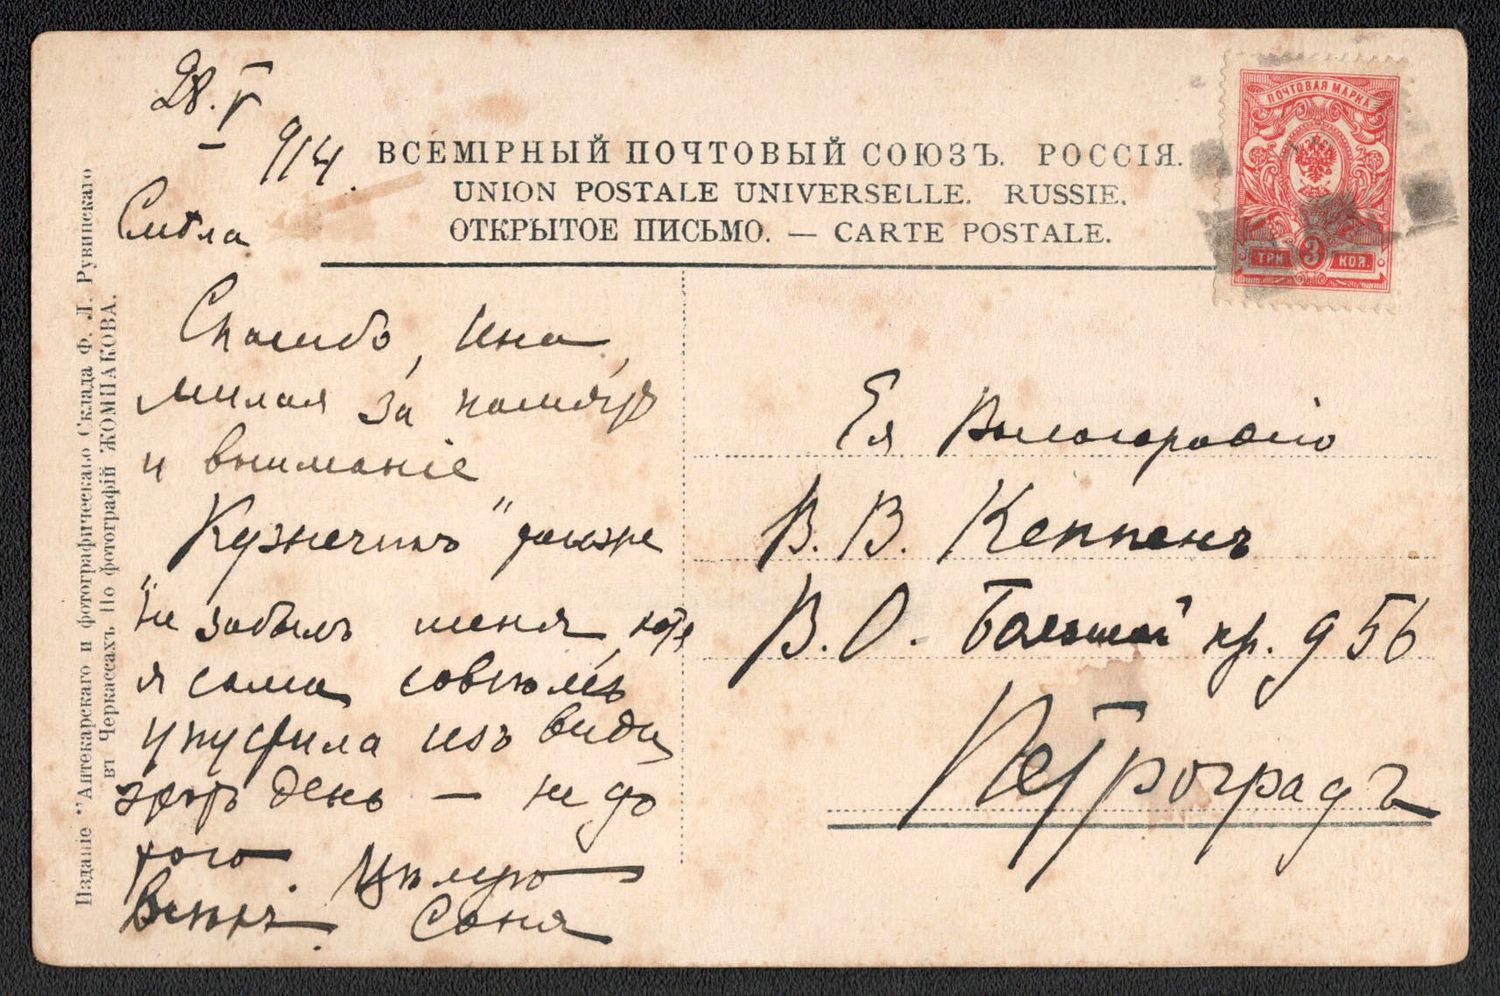 28.V
914.
Смѣла
ВСЕМІРНЫЙ ПОЧТОВЫЙ СОЮЗЪ. РОССІЯ.
UNION POSTALE UNIVERSELLE. RUSSIE.
ОТКРЫТОЕ ПИСЬМО. — CARTE POSTALE.
ПОЧТОВАЯ МАРКА
ТРИ 3 КОП.
Спасибо, Ина,
милая за память
и вниманіе
Кузнечикъ" тоже
"не забылъ меня, хотя
я сама совсѣмъ
упустила изъ виду
этотъ день — не до
того. Цѣлую
Всѣхъ. Соня
Ея Высокородію
В. В. Кеппенъ
В. О. Большой пр. д 56
Петроградъ
Изданіе "Аптекарскаго и фотографическаго Склада Ф. Л. Рувинскаго
въ Черкассахъ. По фотографій ЖОМПАКОВА.